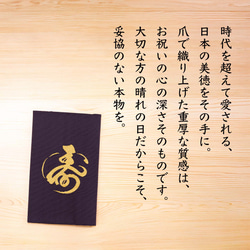 時代を超えて愛される、
日本の美徳をその手に。
爪で織り上げた重厚な質感は、
お祝いの心の深さそのものです。
大切な方の晴れの日だからこそ、
妥協のない本物を。
寿